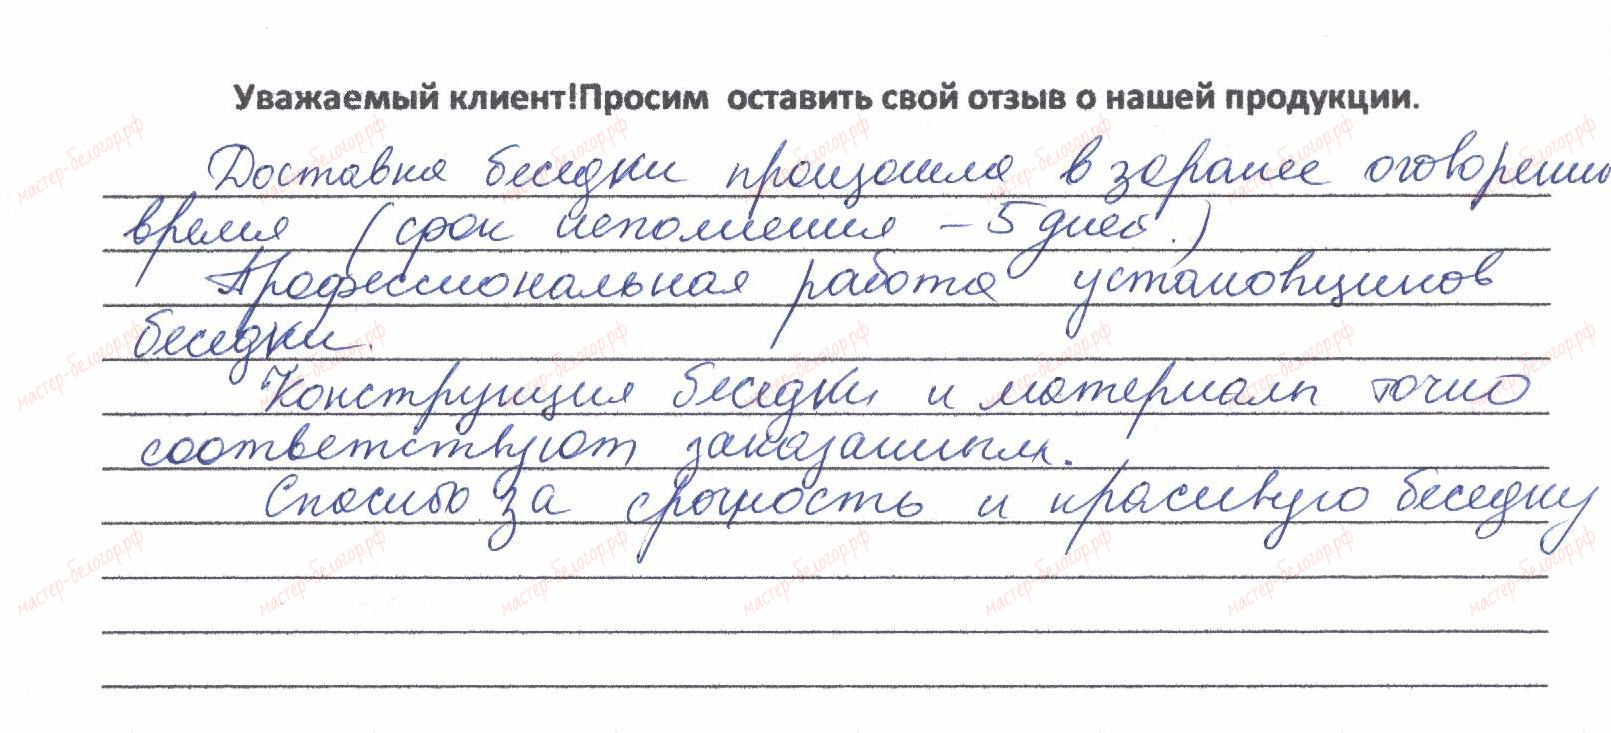 Уважаемый клиент!Просим оставить свой отзыв о нашей продукции.
Доставка беседки произошла в заранее оговоренны
время (срок исполнения – 5 дней.)
Профессиональная работа установщиков
беседки.
Конструкция беседки и материалы точно
соответствуют заказанным.
Спасибо за срочность и красивую беседку
мастер-белогор.рф